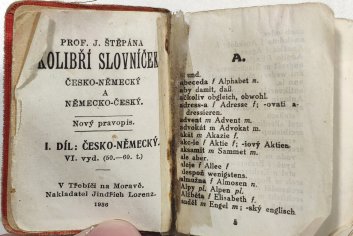 PROF. J. ŠTĚPÁNA
KOLIBŘÍ SLOVNÍČEK
ČESKO-NĚMECKÝ
A
NĚMECKO-ČESKÝ.
Nový pravopis.
I. DÍL: ČESKO-NĚMECKÝ.
VI. vyd. (50.—60. t.)
V Třebíči na Moravě.
Nakladatel Jindřich Lorenz.
1936
A.
a und.
abeceda f Alphabet n.
aby damit, daß.
ačkoliv obgleich, obwohl.
adress-a f Adresse f; -ovati a-
dressieren.
advent m Advent m.
advokát m Advokat m.
akát m Akazie f.
akc-ie f Aktie f; -iový Aktien-
aksamit m Sammet m.
ale aber.
aloje f Allee f.
alespoň wenigstens.
almužna f Almosen n.
Alpy pl. Alpen pl.
Alžběta f Elisabeth f.
anděl m Engel m; -ský englisch.
5